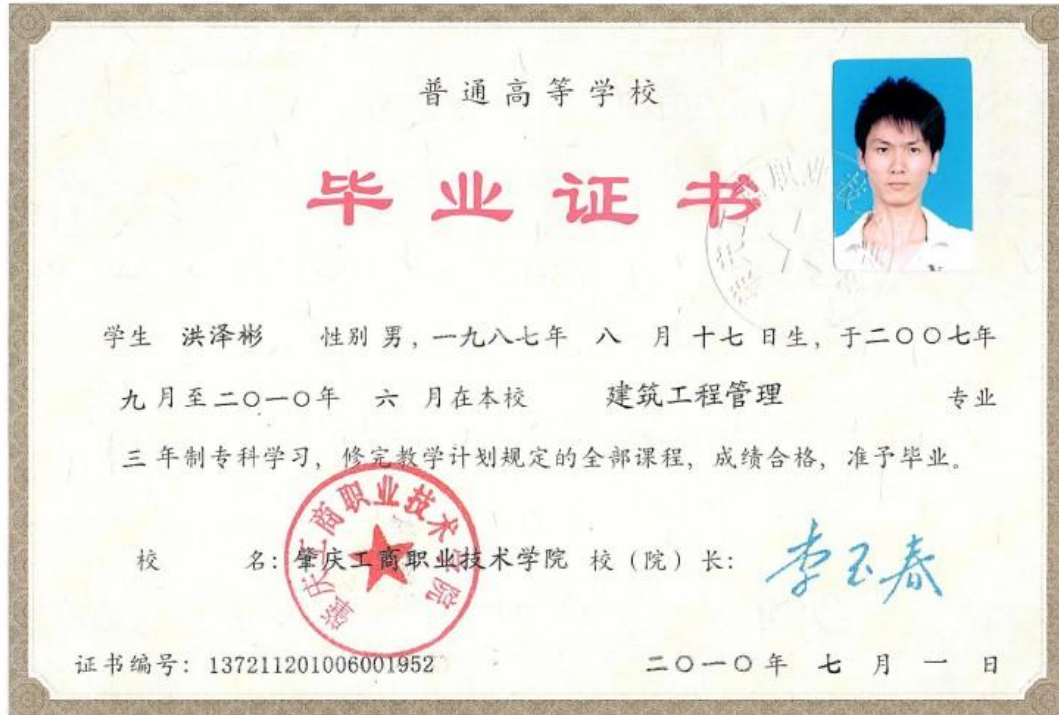 普通高等学校
毕业证书
学生 洪泽彬 性别 男，一九八七年 八 月 十七 日生，于二〇〇七年
九 月至二〇一〇年 六 月在本校 建筑工程管理 专业
三 年制专科学习，修完教学计划规定的全部课程，成绩合格，准予毕业。
肇庆工商职业技术学院
校 名：肇庆工商职业技术学院 校（院）长：李玉春
证书编号：137211201006001952 二〇一〇年 七 月 一 日